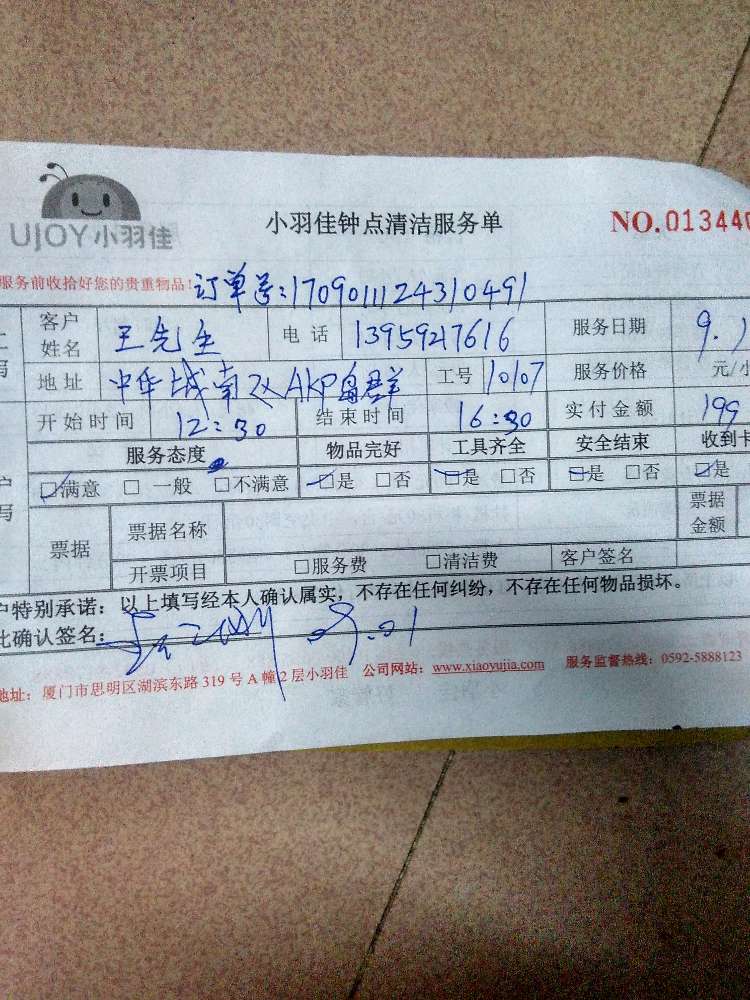 UJOY小羽佳
小羽佳钟点清洁服务单 NO.013440
服务前收拾好您的贵重物品! 订单号:170901124310491
客户姓名 王先生 电话 13959217616 服务日期 9.1
地址 中华城南区AKP 工号 10107 服务价格 元/小
开始时间 12:30 结束时间 16:30 实付金额 199
服务态度 物品完好 工具齐全 安全结束 收到卡
☑满意 □一般 □不满意 ☑是 □否 ☑是 □否 ☑是 □否 ☑是
票据 票据名称 票据金额
开票项目 □服务费 □清洁费 客户签名
户特别承诺:以上填写经本人确认属实,不存在任何纠纷,不存在任何物品损坏。
此确认签名: 9.01
地址:厦门市思明区湖滨东路319号A幢2层小羽佳 公司网站:www.xiaoyujia.com 服务监督热线:0592-5888123